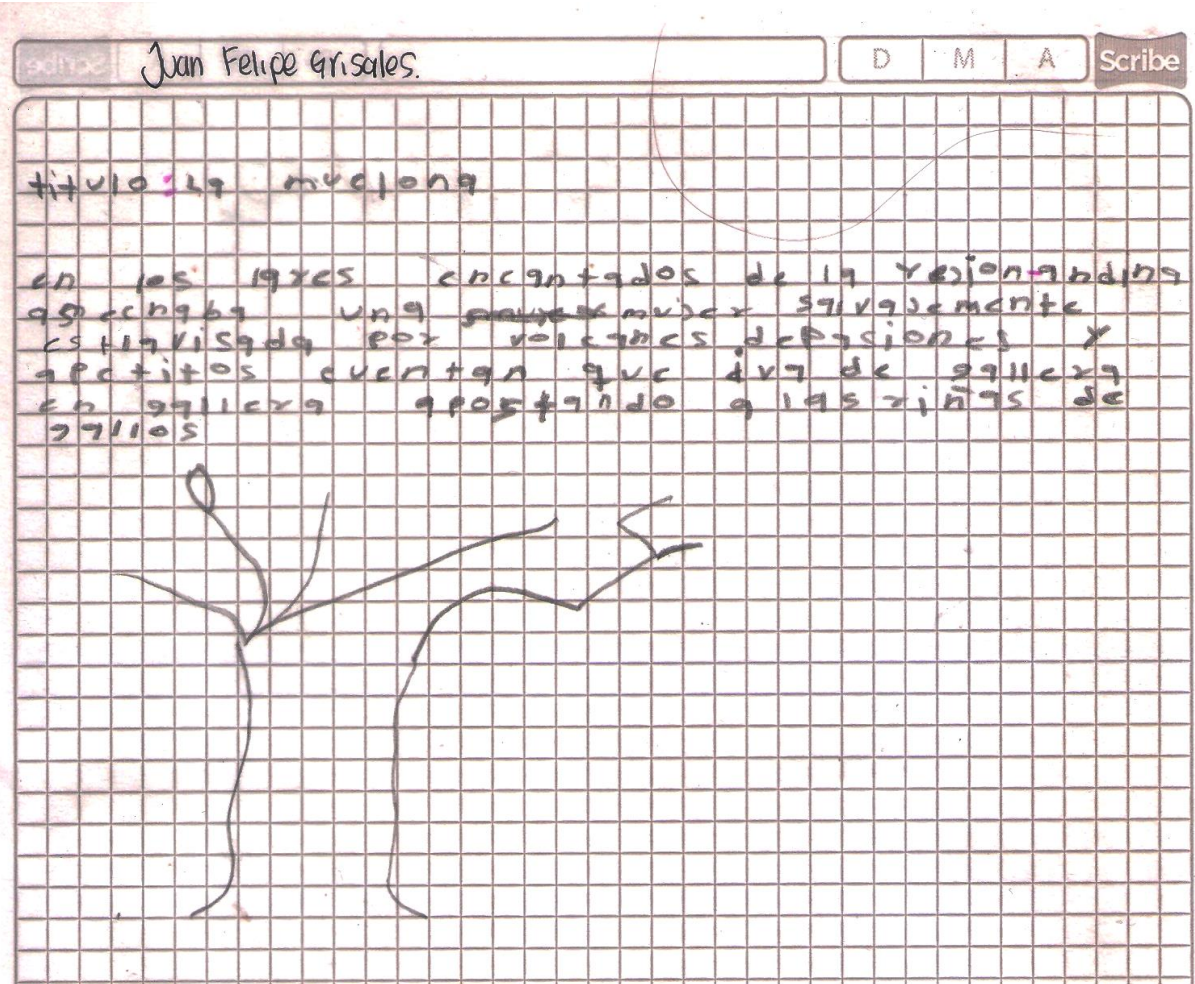 Juan Felipe Grisales.
D M A
Scribe
titulo: La muelona
en los lares encantados de la rejion andina
asrecnaba una mujer salvajemente
estiavisada por volcanes depasiones y
apetitos cuentan que iva de gallera
en gallera apostando a las riñas de
gallos